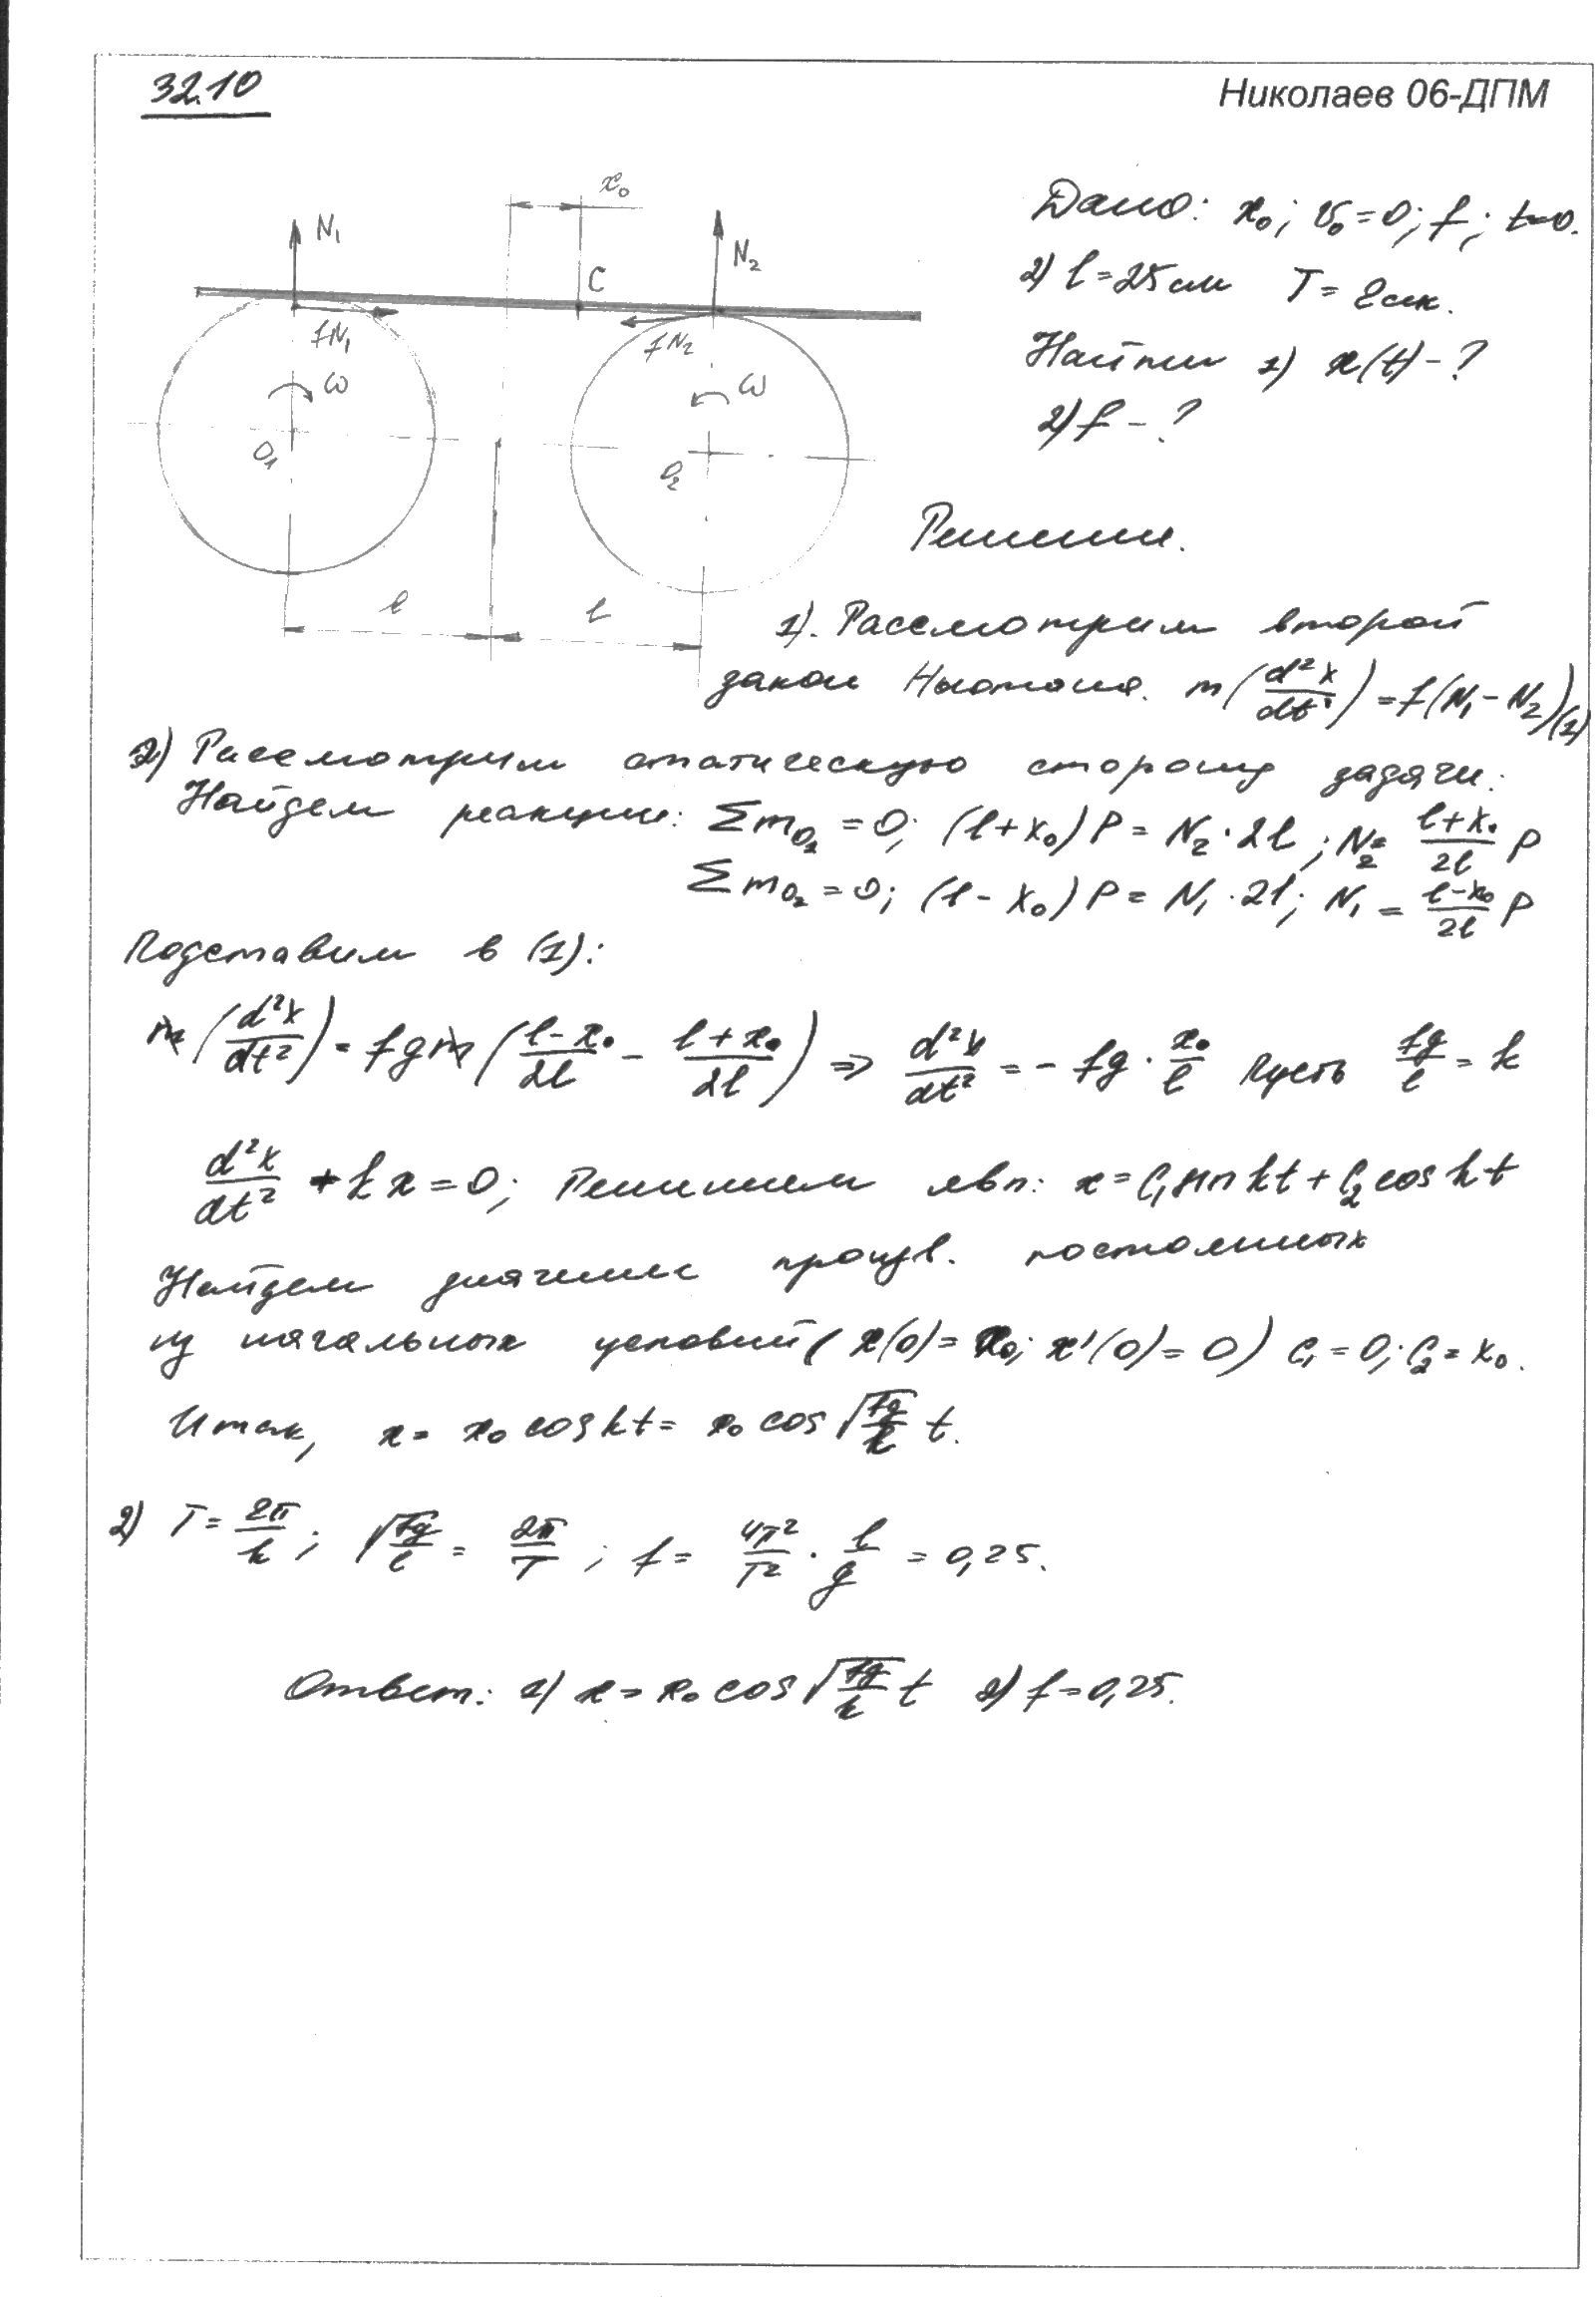 32.10
Николаев 06-ДПМ
x₀
N₁
N₂
C
fN₁
fN₂
ω
ω
O₁
O₂
l
l
Дано: x₀; v₀=0; f; t=0.
2) l=25см T=2сек.
Найти 1) x(t)-?
2) f-?
Решение.
1). Рассмотрим второй
закон Ньютона. m(d²x/dt²)=f(N₁-N₂)(1)
2) Рассмотрим статическую сторону задачи:
Найдем реакции: Σm_O₁=0; (l+x₀)P=N₂·2l; N₂=(l+x₀)/2l P
Σm_O₂=0; (l-x₀)P=N₁·2l; N₁=(l-x₀)/2l P
Подставим в (1):
m(d²x/dt²)=fgm((l-x₀)/2l - (l+x₀)/2l) ⇒ d²x/dt²=-fg·x₀/l Пусть fg/l=k
d²x/dt²+kx=0; Решением явл: x=C₁sin kt+C₂cos kt
Найдем значение произв. постоянных
из начальных условий (x(0)=x₀; x'(0)=0) C₁=0; C₂=x₀.
Итак, x=x₀cos kt=x₀cos√(fg/k) t.
2) T=2π/k; √(fg/l)=2π/T; f=4π²/T²·l/g=0,25.
Ответ: 1) x=x₀cos√(fg/k) t 2) f=0,25.